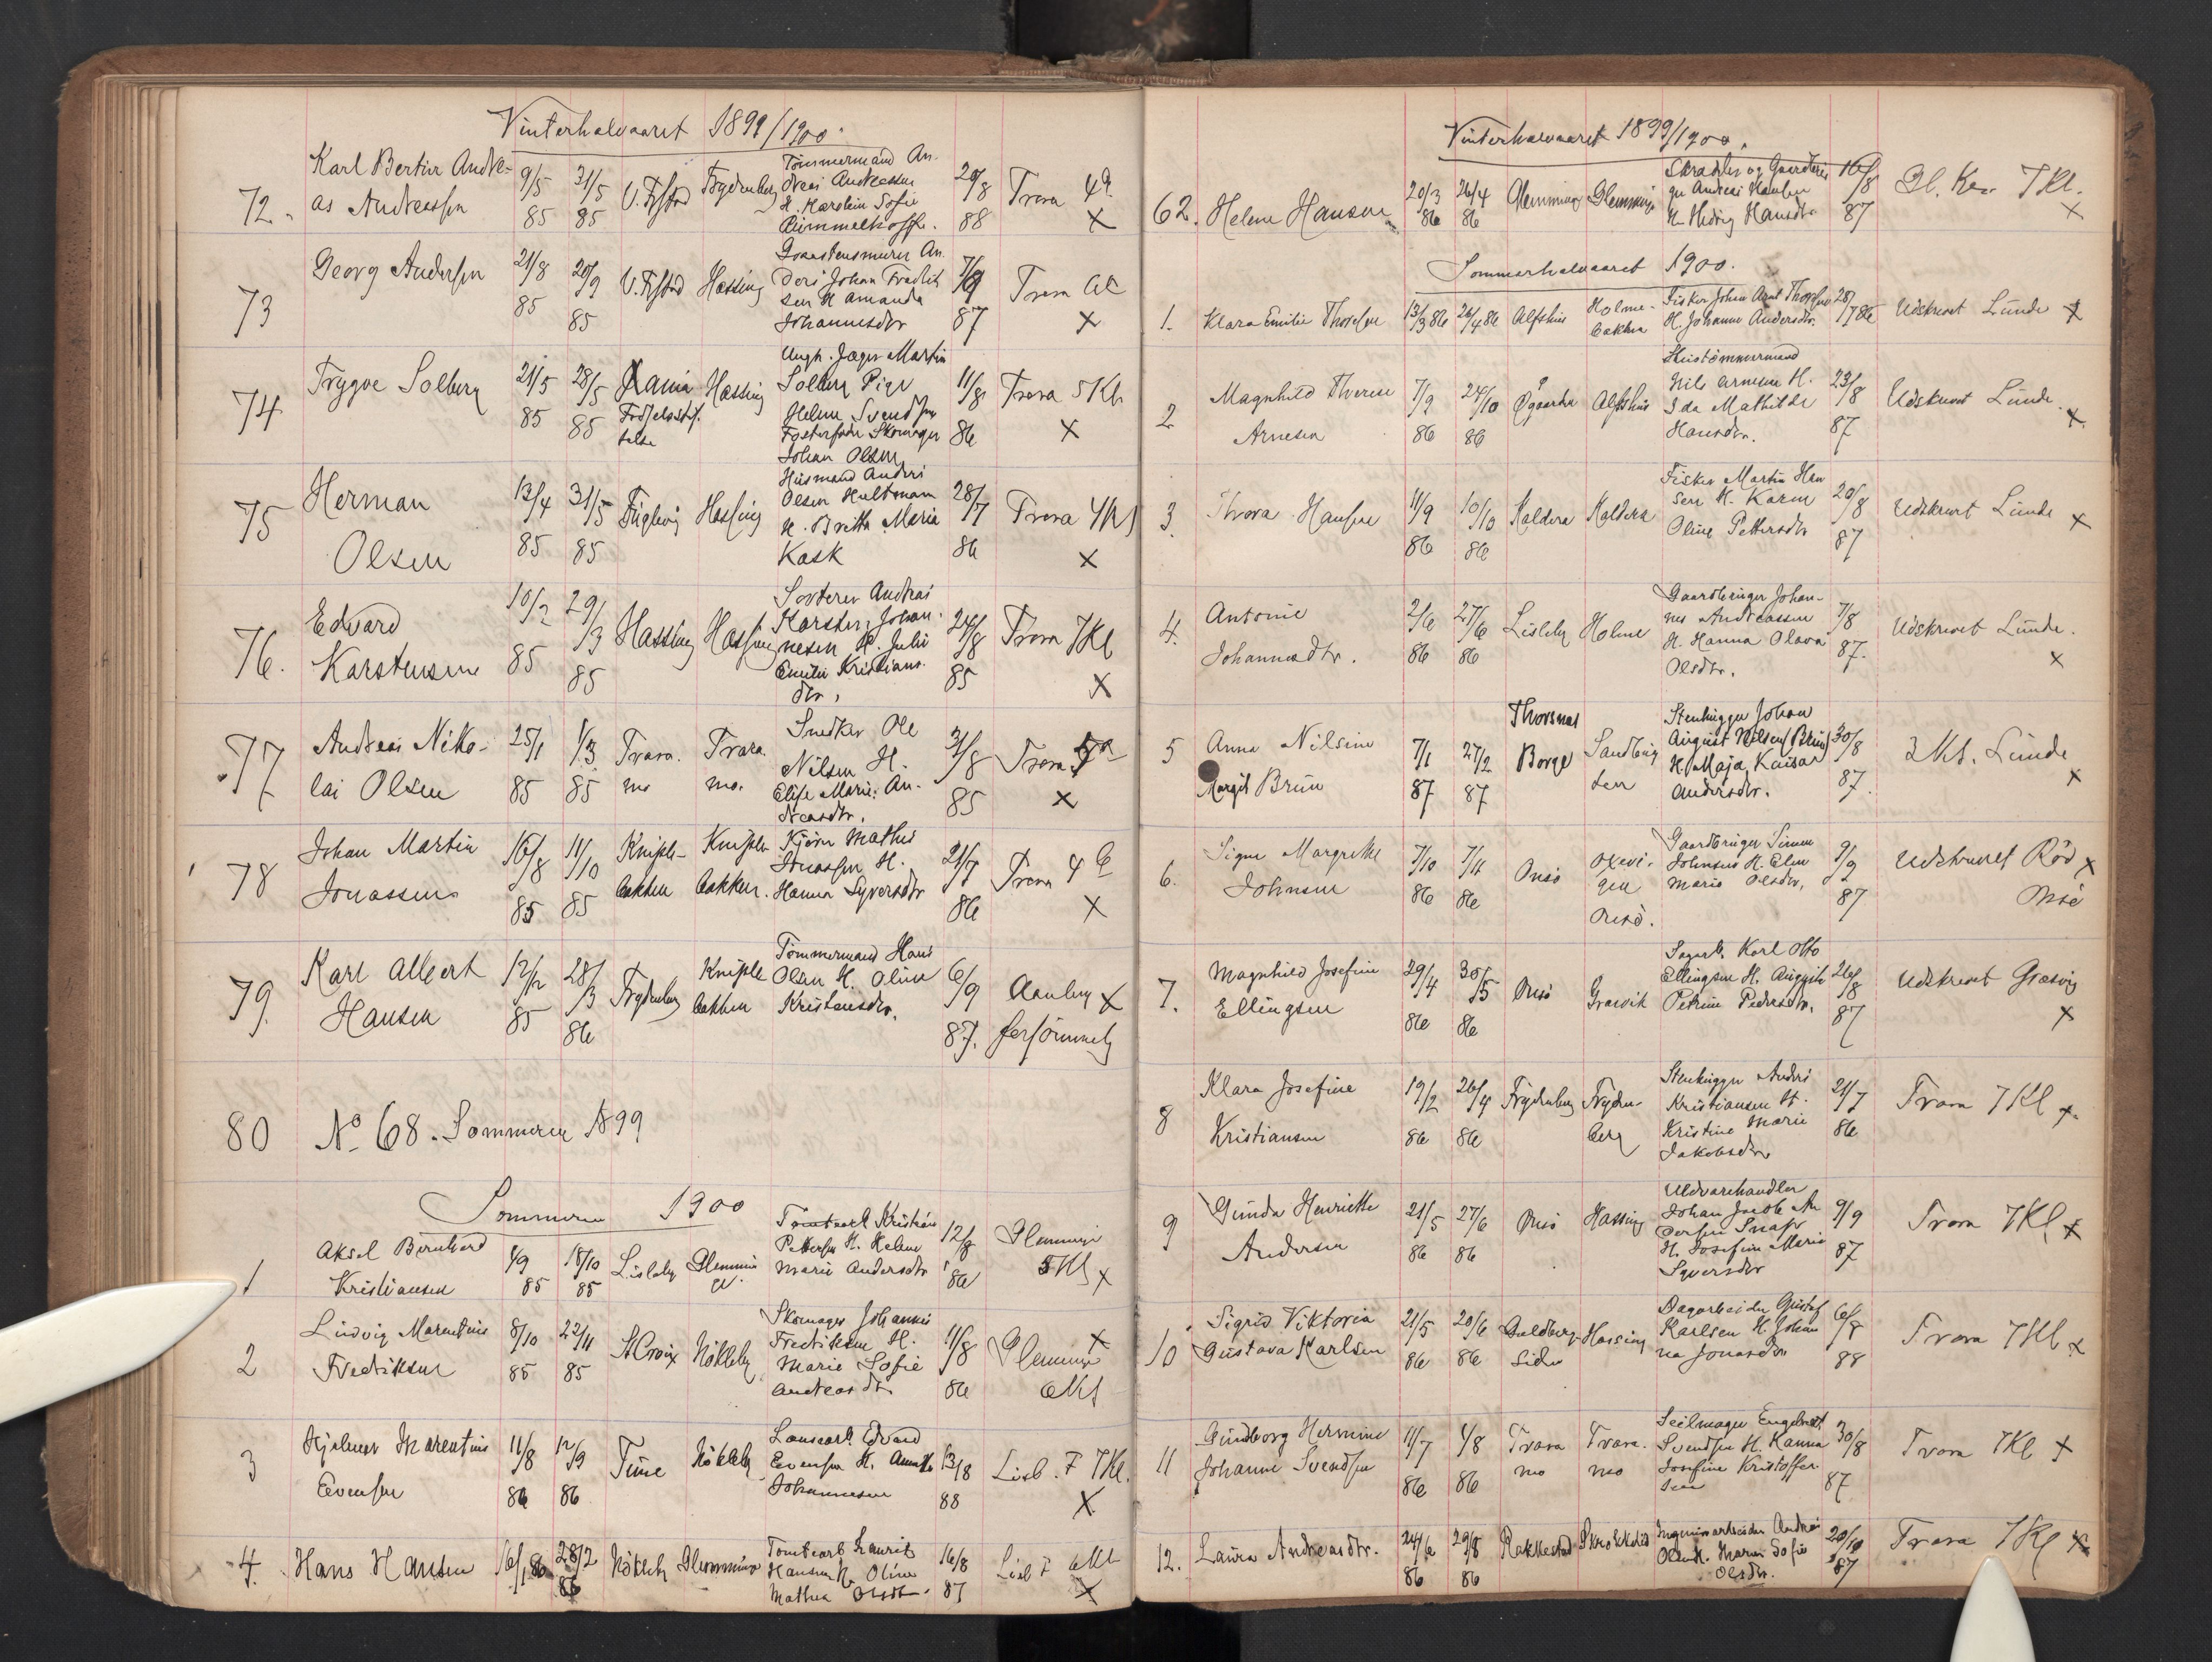 Vinterhalvaaret 1899/1900.
72. Karl Bertin Andre-
as Andreassen 9/5 85 31/5 85 V. Fr.stad Frydenberg Tömmermand An-
dreas Andreassen
H. Karoline Sofie
29/8 88 Trara 4a X
73 Georg Andersen 21/8 85 20/9 85 V. Fr.stad Hassing Graastensmurer An-
ders Johan Fredrik
sen H Amanda
Johannesdtr 7/9 87 Trara X
74 Trygve Solberg 21/5 85 28/5 85 Fødselsstif-
telse Hassing Ungk. Jæger Martin
Solberg Pige
Helene Svendsen
Fosterfader Skomager
Johan Olsen 11/8 86 Trara 5 Kl X
75 Herman
Olsen 13/4 85 31/5 85 Fuglevig Hassing Husmand Anders
Olsen Hultmann
H. Britta Maria
Kask 28/7 86 Trara 4 Kl X
76. Edvard
Karstensen 10/2 85 29/3 85 Hassing Hassing Sorterer Andreas
Karsten Johan-
nesen H. Julie
Emilie Kristians-
dtr. 24/8 85 Trara 7 Kl X
77 Andreas Niko-
lai Olsen 25/1 85 1/3 85 Trara-
mo Trara-
mo. Snedker Ole
Nilsen H.
Elise Marie An-
dreasdtr. 31/8 85 Trara X
78 Johan Martin
Jonassen 16/8 85 11/10 85 Kniple-
bakken Kniple-
bakken. Kjører Mathis
Jonassen H.
Hanna Syversdtr 21/7 86 Trara 4 X
79. Karl Albert
Hansen 12/12 85 28/3 86 Frydenberg Kniple
bakken Tömmermand Hans
Olsen H. Oline
Kristensdtr. 6/9 87. X
80 No 68. Sommeren 1899
Sommeren 1900
1 Aksel Bernhard
Kristiansen 4/9 85 18/10 85 Lisleby Glemmin
ge. Tomtearb Kristian
Pettersen H. Helene
Marie Andersdtr 12/8 86 Glemminge
5 Kl X
2 Ludvig Marentius
Fredriksen 8/10 85 22/11 85 St Croix Nökleby Skomager Johannes
Fredriksen H.
Marie Sofie
Andreasdtr. 11/8 86 X
Glemminge
6 Kl
3 Hjalmar Marentius
Evensen 11/8 86 12/9 86 Tune Nökleby Losearb. Edvard
Evensen H.
Johannesen 13/8 88 Lisb. F 7 Kl. X
4. Hans Hansen 16/1 86 28/2 86 Nökleby Glemminge Tomtearb Laurits
Hansen H. Oline
Mathea Olsdtr. 16/8 87 Lisb F 6 Kl X
Vinterhalvaaret 1899/1900.
62. Helene Hansen 20/3 86 26/4 86 Glemminge Glemminge Skrædder og Gaardbru-
ger Andreas Hansen
H Hedvig Hansdtr 16/8 87 Gl. Kir. 7 Kl. X
Sommerhalvaaret 1900.
1. Klara Emilie Thoresen 13/3 86 26/4 86 Alfshus Holme-
bakken Fisker Johan Arnt Thoresen
H. Johanne Andersdtr. 28/7 86 Udskrevet Lunde X
2 Magnhild Therese
Arnesen 7/9 86 24/10 86 Øgaarden Alfshus Skistömmermand
Nils Arnesen H.
Ida Mathilde
Hansdtr. 23/8 87 Udskrevet Lunde. X
3. Thora Hansen 11/9 86 10/10 86 Kaldera Kaldera Fisker Martin Han
sen H. Karen
Oline Pettersdtr 20/8 87 Udskrevet Lunde X
4. Antonie
Johannesdtr. 2/6 86 27/6 86 Lisleby Holme Gaardbruger Johan-
nes Andreassen
H. Hanna Olava
Olsdtr. 7/8 87. Udskrevet Lunde. X
5 Anna Nilsine
Margit Brun 7/1 87 27/2 87 Thorsnæs
Borge Sandbug
ten Stenhugger Johan
August Nilsen (Brun)
H. Maja Kaisa
Andersdtr. 30/8 87. 3 Kl. Lunde X
6. Signe Margrethe
Johnsen 7/10 86 7/11 86 Onsö Oxevi-
gen
Onsö. Gaardbruger Simen
Johnsen H. Elen
Marie Olsdtr. 9/9 87 Udskrevet Röd X
Onsö
7. Magnhild Josefine
Ellingsen 29/4 86 30/5 86 Onsö Græsvik Sagarb. Karl Otto
Ellingsen H. Auguste
Petrine Pedersdtr. 26/8 87 Udskrevet Græsvig X
8 Klara Josefine
Kristiansen 19/2 86 26/4 86 Frydenberg Fryden-
berg Stenhugger Anders
Kristiansen H.
Kristine Marie
Jakobsdtr 21/7 86 Trara 7 Kl X
9 Gunda Henriette
Andersen 21/5 86 27/6 86 Onsö Hassing Uldvarehandler
Johan Jacob An
dersen
H. Josefine Marie
Syversdtr 9/9 87 Trara 7 Kl X
10 Sigrid Viktoria
Gustava Karlsen 21/5 86 20/6 86 Guldberg-
siden Hassing Dagarbeider Gustaf
Karlsen H. Johan
na Jonasdtr 6/8 88 Trara 7 Kl X
11 Gundborg Hermine
Johanne Svendsen 11/7 86 1/8 86 Trara
mo Trara-
mo Seilmager Engebret
Svendsen H. Hanna
Josefine Kristoffer
sen 30/8 87 Trara 7 Kl X
12. Laura Andreasdtr. 24/6 86 29/8 86 Rakkestad Andreas
Olsen H. Maren Sofie
Olsdtr. 20/10 87 Trara 7 Kl X